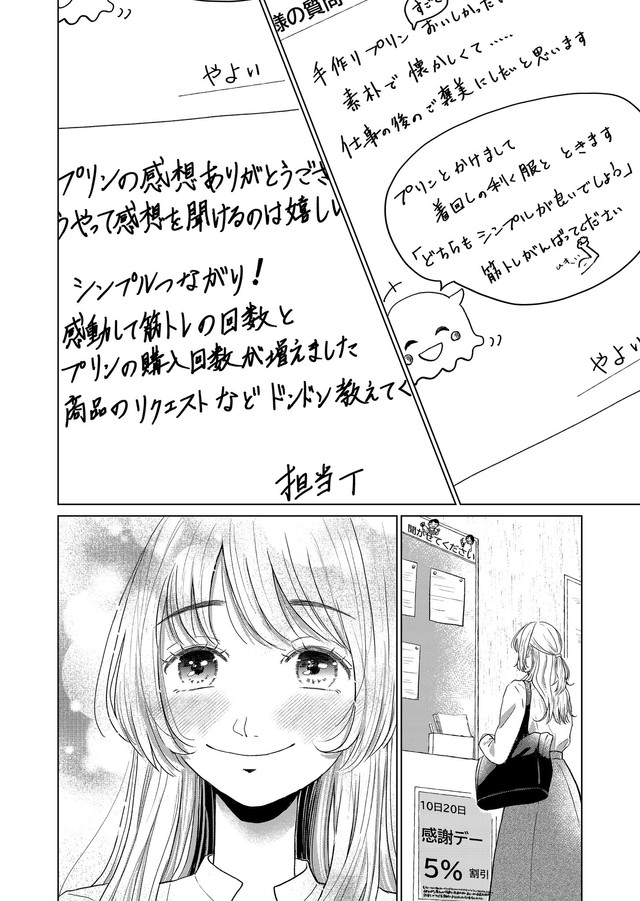 様の質問
すごく
手作りプリン おいしかった
素朴で懐かしくて……
仕事の後のご褒美にしたいと思います
プリンとかけまして
着回しの利く服と ときます
「どちらもシンプルが良いでしょう」
筋トレがんばってください
やよい
やよい
プリンの感想ありがとうござ
うやって感想を聞けるのは嬉しい
シンプルつながり!
感動して筋トレの回数と
プリンの購入回数が増えました
商品のリクエストなどドンドン教えてく
担当 T
聞かせてください
10日20日
感謝デー
5% 割引